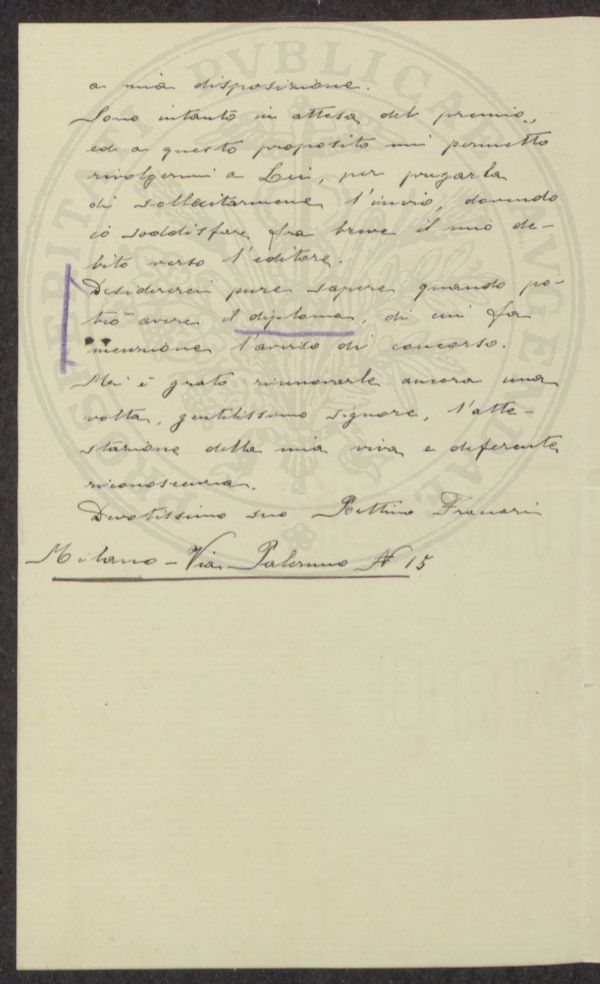 a mia disposizione.
Sono intanto in attesa del premio,
ed a questo proposito mi permetto
rivolgermi a Lei, per pregarla
di sollecitarmene l'invio, dovendo
io soddisfare fra breve il mio de-
bito verso l'editore.
Desidererei pure sapere quando po-
trò avere il diploma, di cui fa
menzione l'avviso di concorso.
Mi è grato rinnovarle ancora una
volta, gentilissimo signore, l'atte-
stazione della mia viva e deferente
riconoscenza.
Devotissimo suo
Milano - Via Palermo N 15